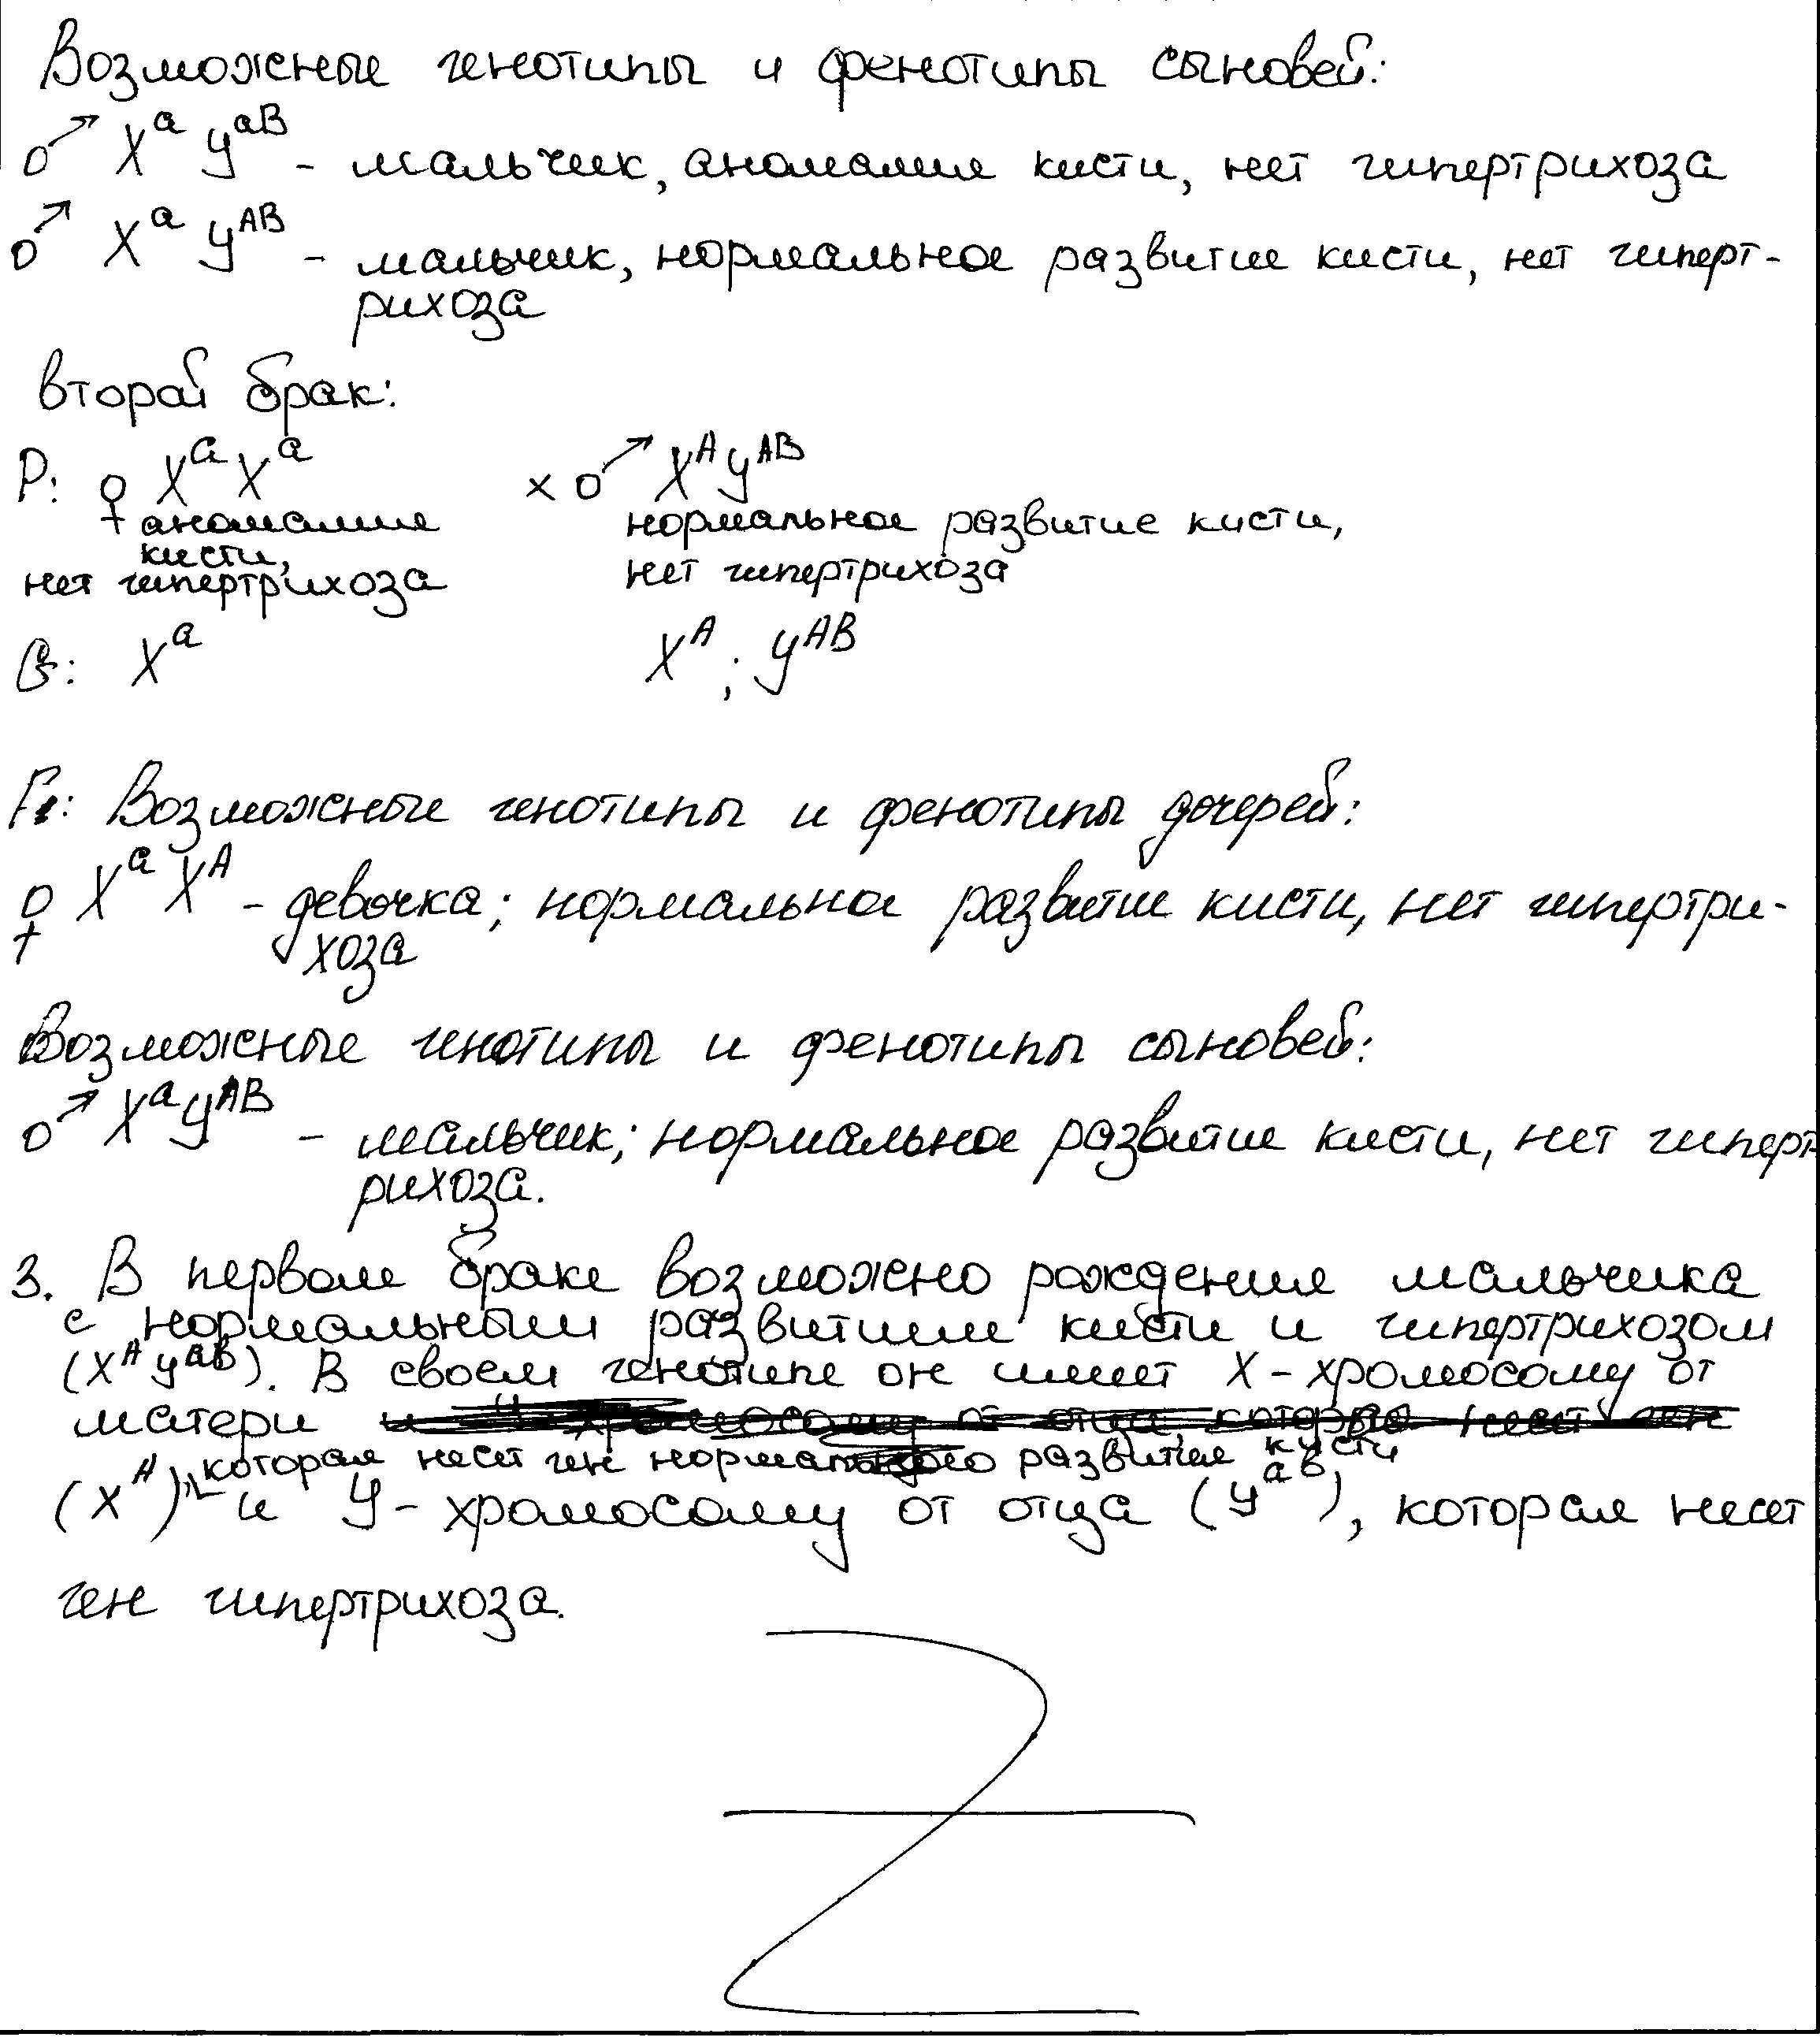 Возможные генотипы и фенотипы сыновей:
♂ Xᵃ Yᵃᴮ - мальчик, аномалия кисти, нет гипертрихоза
♂ Xᵃ Yᴬᴮ - мальчик, нормальное развитие кисти, нет гиперт-
рихоза
второй брак:
P: ♀ Xᵃ Xᵃ × ♂ Xᴬ Yᴬᴮ
аномалия нормальное развитие кисти,
кисти,
нет гипертрихоза нет гипертрихоза
G: Xᵃ Xᴬ ; Yᴬᴮ
F₁: Возможные генотипы и фенотипы дочерей:
♀ Xᵃ Xᴬ - девочка; нормальное развитие кисти, нет гипертри-
хоза
Возможные генотипы и фенотипы сыновей:
♂ Xᵃ Yᴬᴮ - мальчик; нормальное развитие кисти, нет гиперт
рихоза.
3. В первом браке возможно рождение мальчика
с нормальным развитием кисти и гипертрихозом
(Xᴬ Yᵃᵇ). В своем генотипе он имеет X-хромосому от
матери
которая несет ген нормального развития кисти
(Xᴬ), и Y-хромосому от отца (Yᵃᵇ), которая несет
ген гипертрихоза.